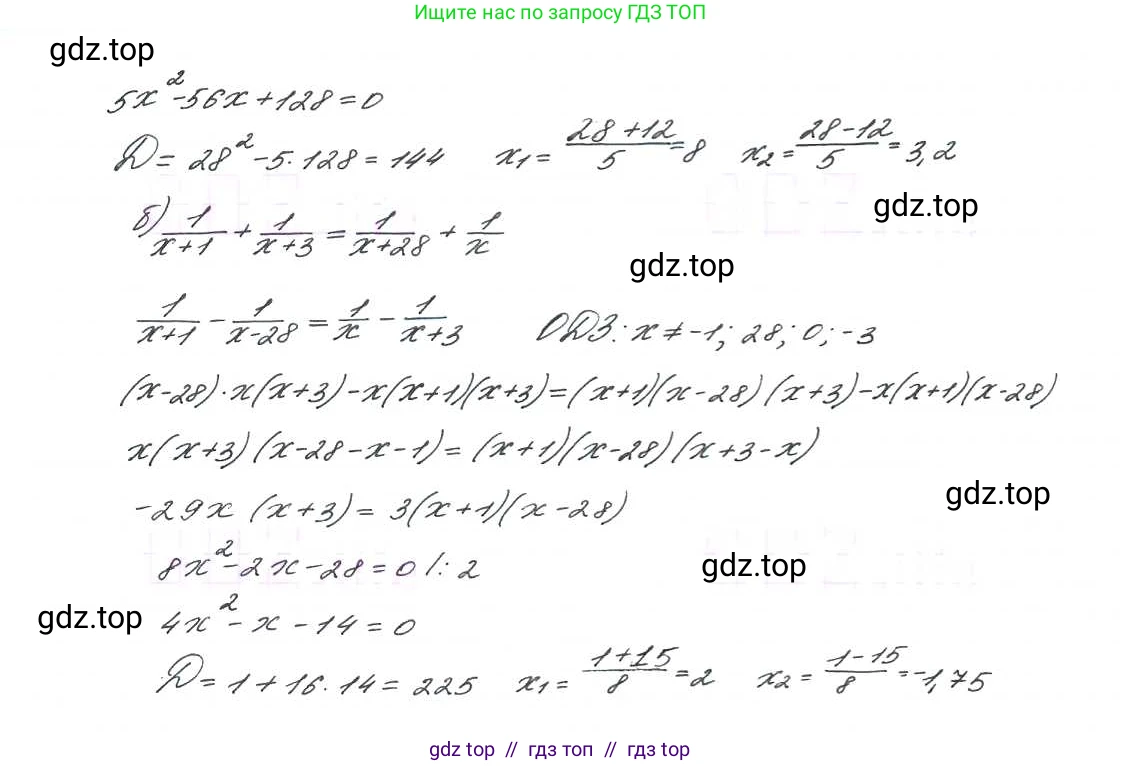 Ищите нас по запросу ГДЗ ТОП
gdz.top
5x²-56x+128=0
D=28²-5·128=144 x₁=(28+12)/5=8 x₂=(28-12)/5=3,2
gdz.top
б) 1/(x+1) + 1/(x+3) = 1/(x+28) + 1/x
gdz.top
1/(x+1) - 1/(x-28) = 1/x - 1/(x+3) ОДЗ: x≠-1; 28; 0; -3
(x-28)·x(x+3)-x(x+1)(x+3)=(x+1)(x-28)(x+3)-x(x+1)(x-28)
x(x+3)(x-28-x-1)=(x+1)(x-28)(x+3-x)
-29x(x+3)=3(x+1)(x-28)
gdz.top
8x²-2x-28=0 /:2
gdz.top
gdz.top
4x²-x-14=0
D=1+16·14=225 x₁=(1+15)/8=2 x₂=(1-15)/8=-1,75
gdz top // гдз топ // gdz top